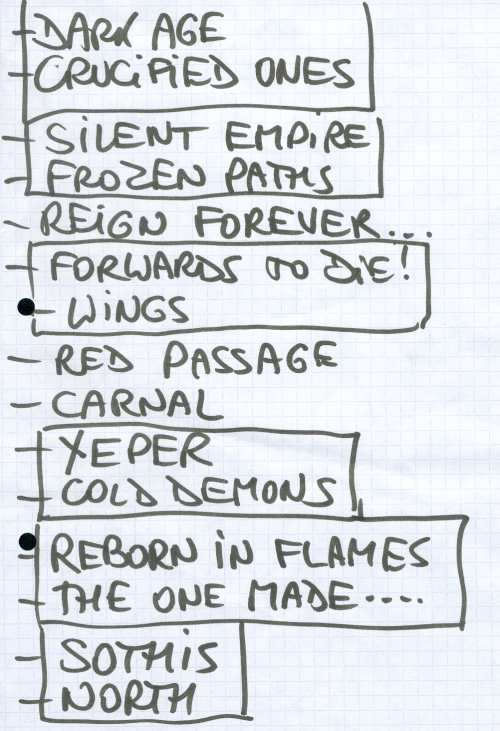 - DARK AGE
- CRUCIFIED ONES
- SILENT EMPIRE
- FROZEN PATHS
- REIGN FOREVER...
- FORWARDS TO DIE!
- WINGS
- RED PASSAGE
- CARNAL
- XEPER
- COLD DEMONS
- REBORN IN FLAMES
- THE ONE MADE....
- SOTHIS
- NORTH